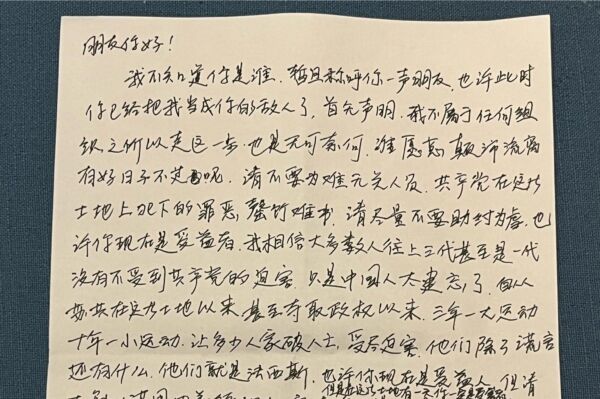 朋友你好!
我不知道你是谁，暂且称呼你一声朋友，也许此时
你已给把我当成你的敌人了，首先声明，我不属于任何组
织之所以走这一步，也是无可奈何，谁愿意颠沛流离
有好日子不过呢，请不要为难无关人员，共产党在这片
土地上犯下的罪恶，罄竹难书，请尽量不要助纣为虐，也
许你现在是受益者，我相信大多数人往上三代甚至是一代
没有不受到共产党的迫害，只是中国人太健忘了，自从
苏共在这片土地以来，甚至夺取政权以来，三年一大运动
十年一小运动，让多少人家破人亡，受尽迫害，他们除了谎言
还有什么，他们就是法西斯，也许你现在是受益人，但请